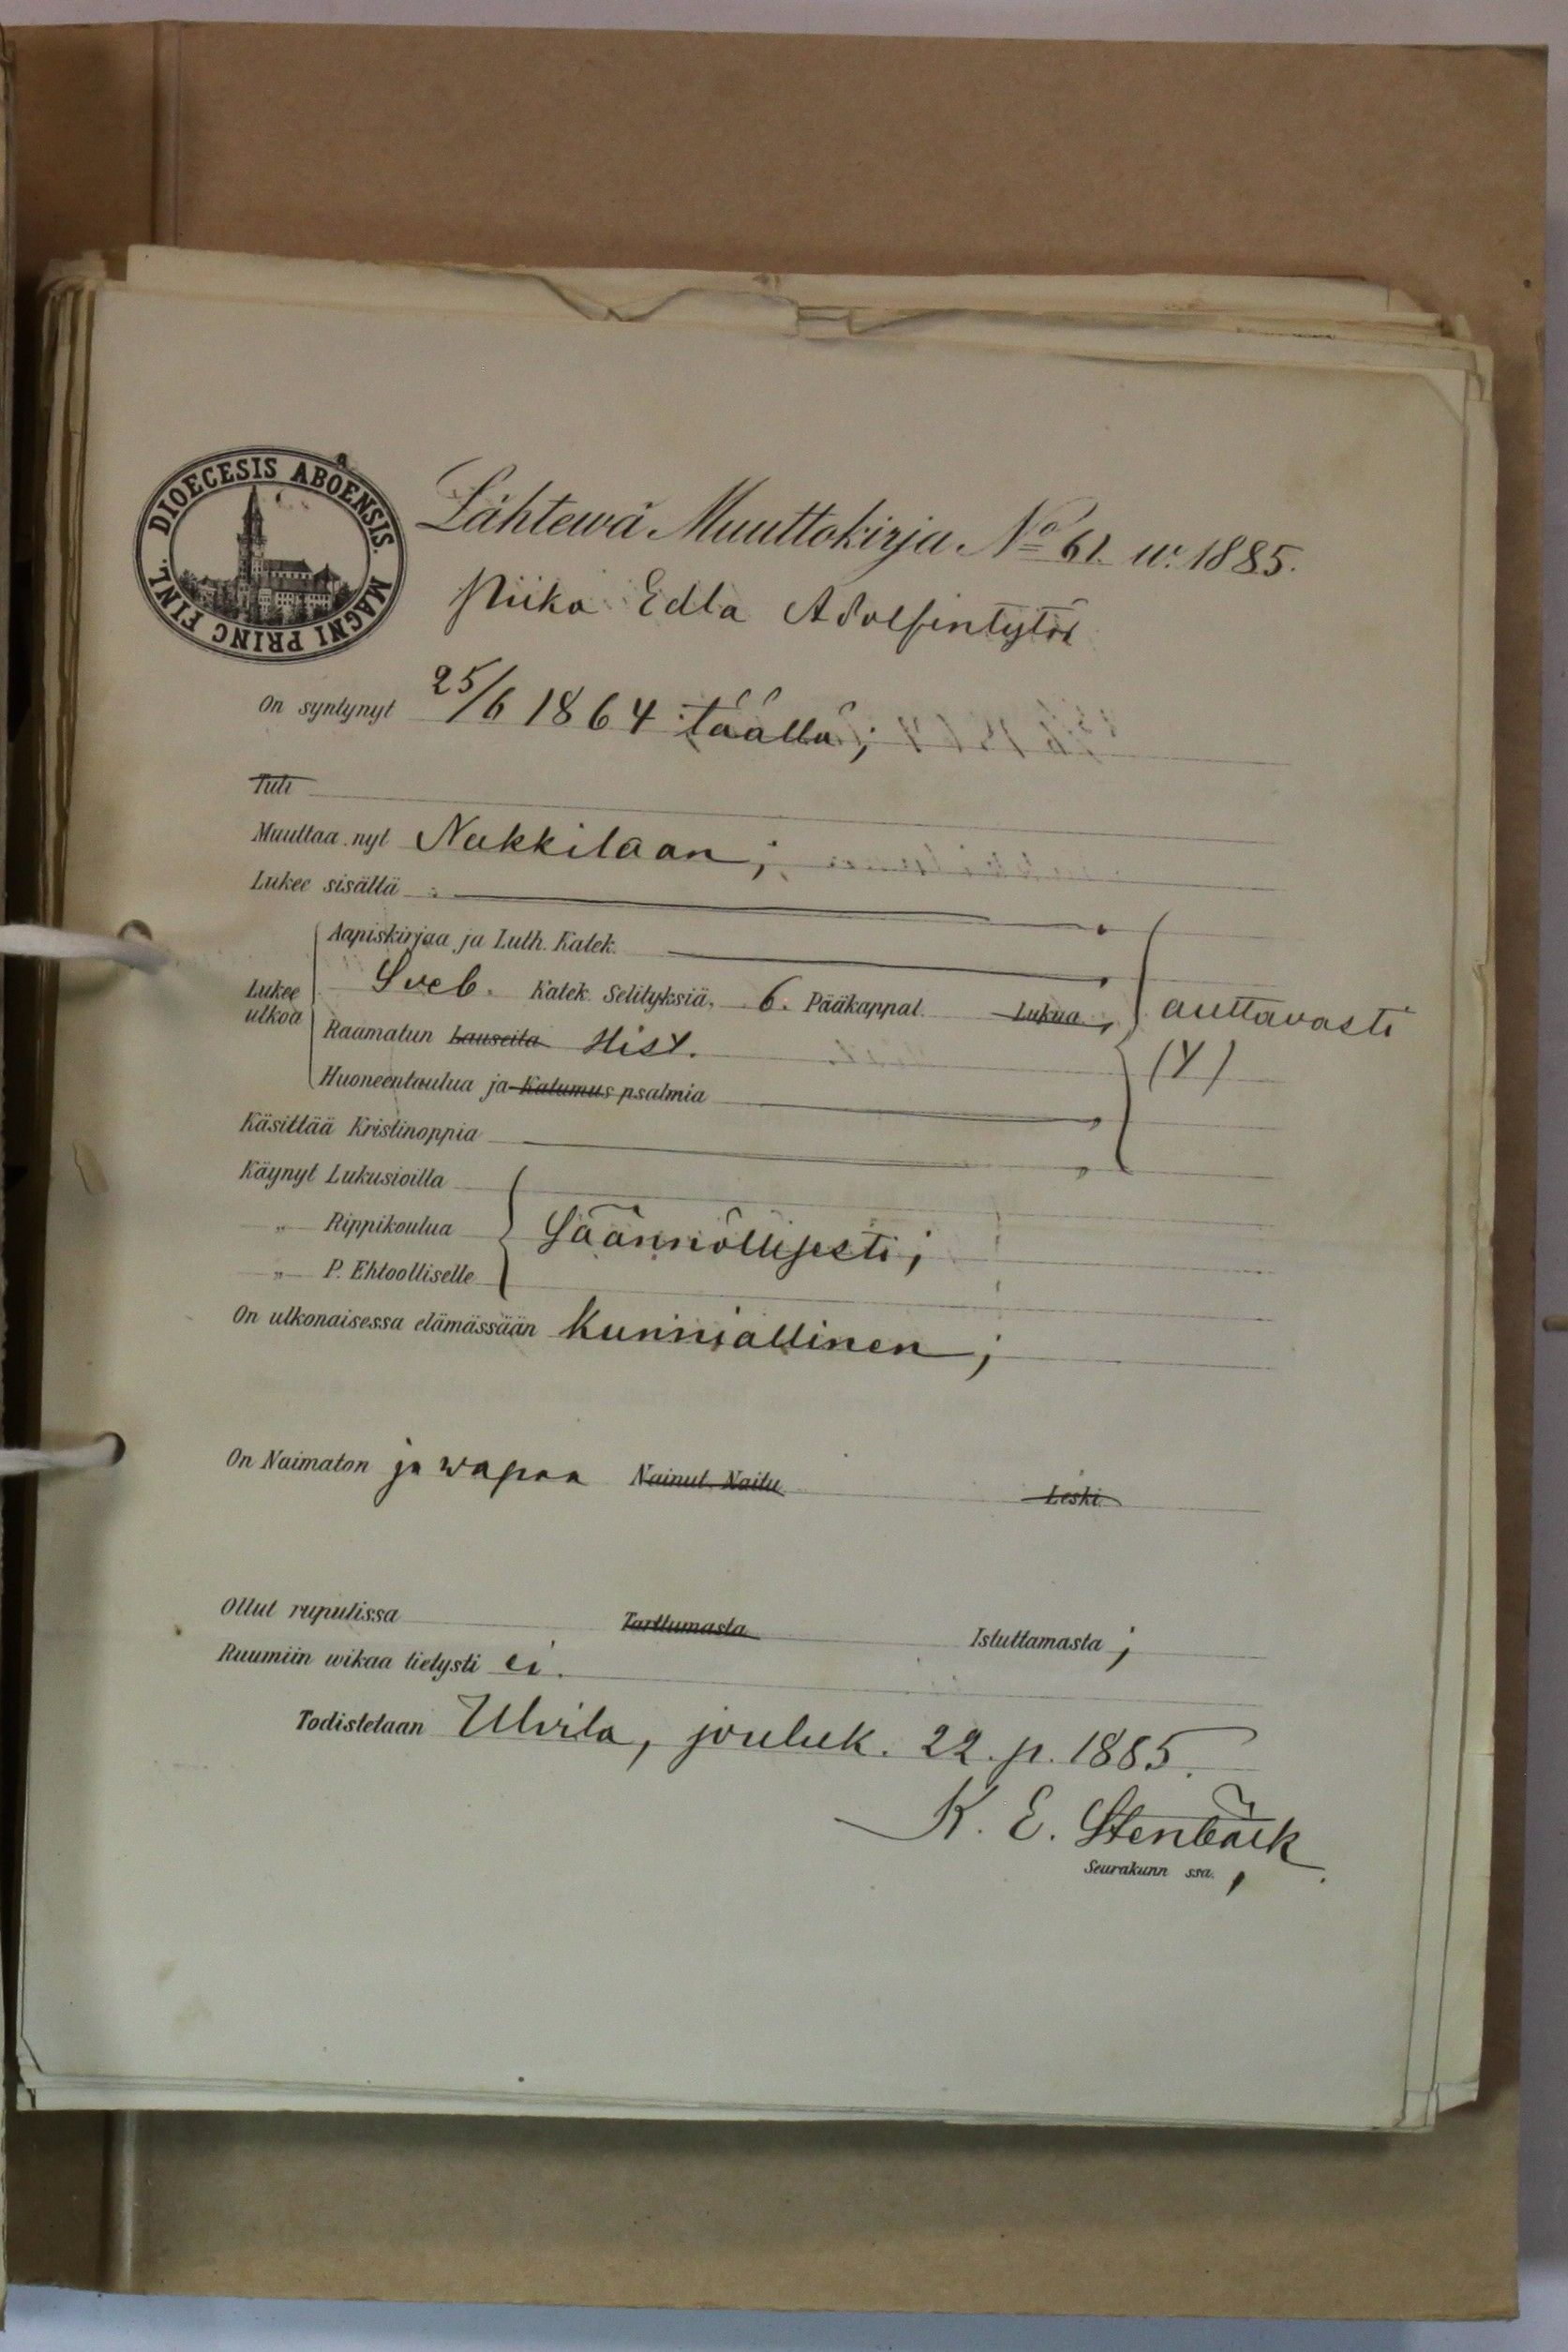 DIOECESIS ABOËNSIS. MAGNI PRINC FINL.
Lähtewä Muuttokirja No 61. w. 1885.
Piika Edla Adolfintytär
On syntynyt 25/6 1864 täällä;
Tuli
Muuttaa nyt Nakkilaan;
Lukee sisältä
Aapiskirjaa ja Luth. Katek.
Lukee ulkoa Sveb. Katek. Selityksiä, 6. Pääkappal. Lukua auttavasti
Raamatun Lauseita Hist. (Y)
Huoneentaulua ja Katumus psalmia
Käsittää Kristinoppia
Käynyt Lukusioilla
„ Rippikoulua Säännöllisesti;
„ P. Ehtoolliselle
On ulkonaisessa elämässään Kunniallinen;
On Naimaton ja wapaa Nainut Naitu Leski
Ollut rupulissa Tarttumasta Istuttamasta;
Ruumiin wikaa tietysti ei.
Todistetaan Ulvila, jouluk. 22. p. 1885.
K. E. Stenbäck
Seurakunn ssa.